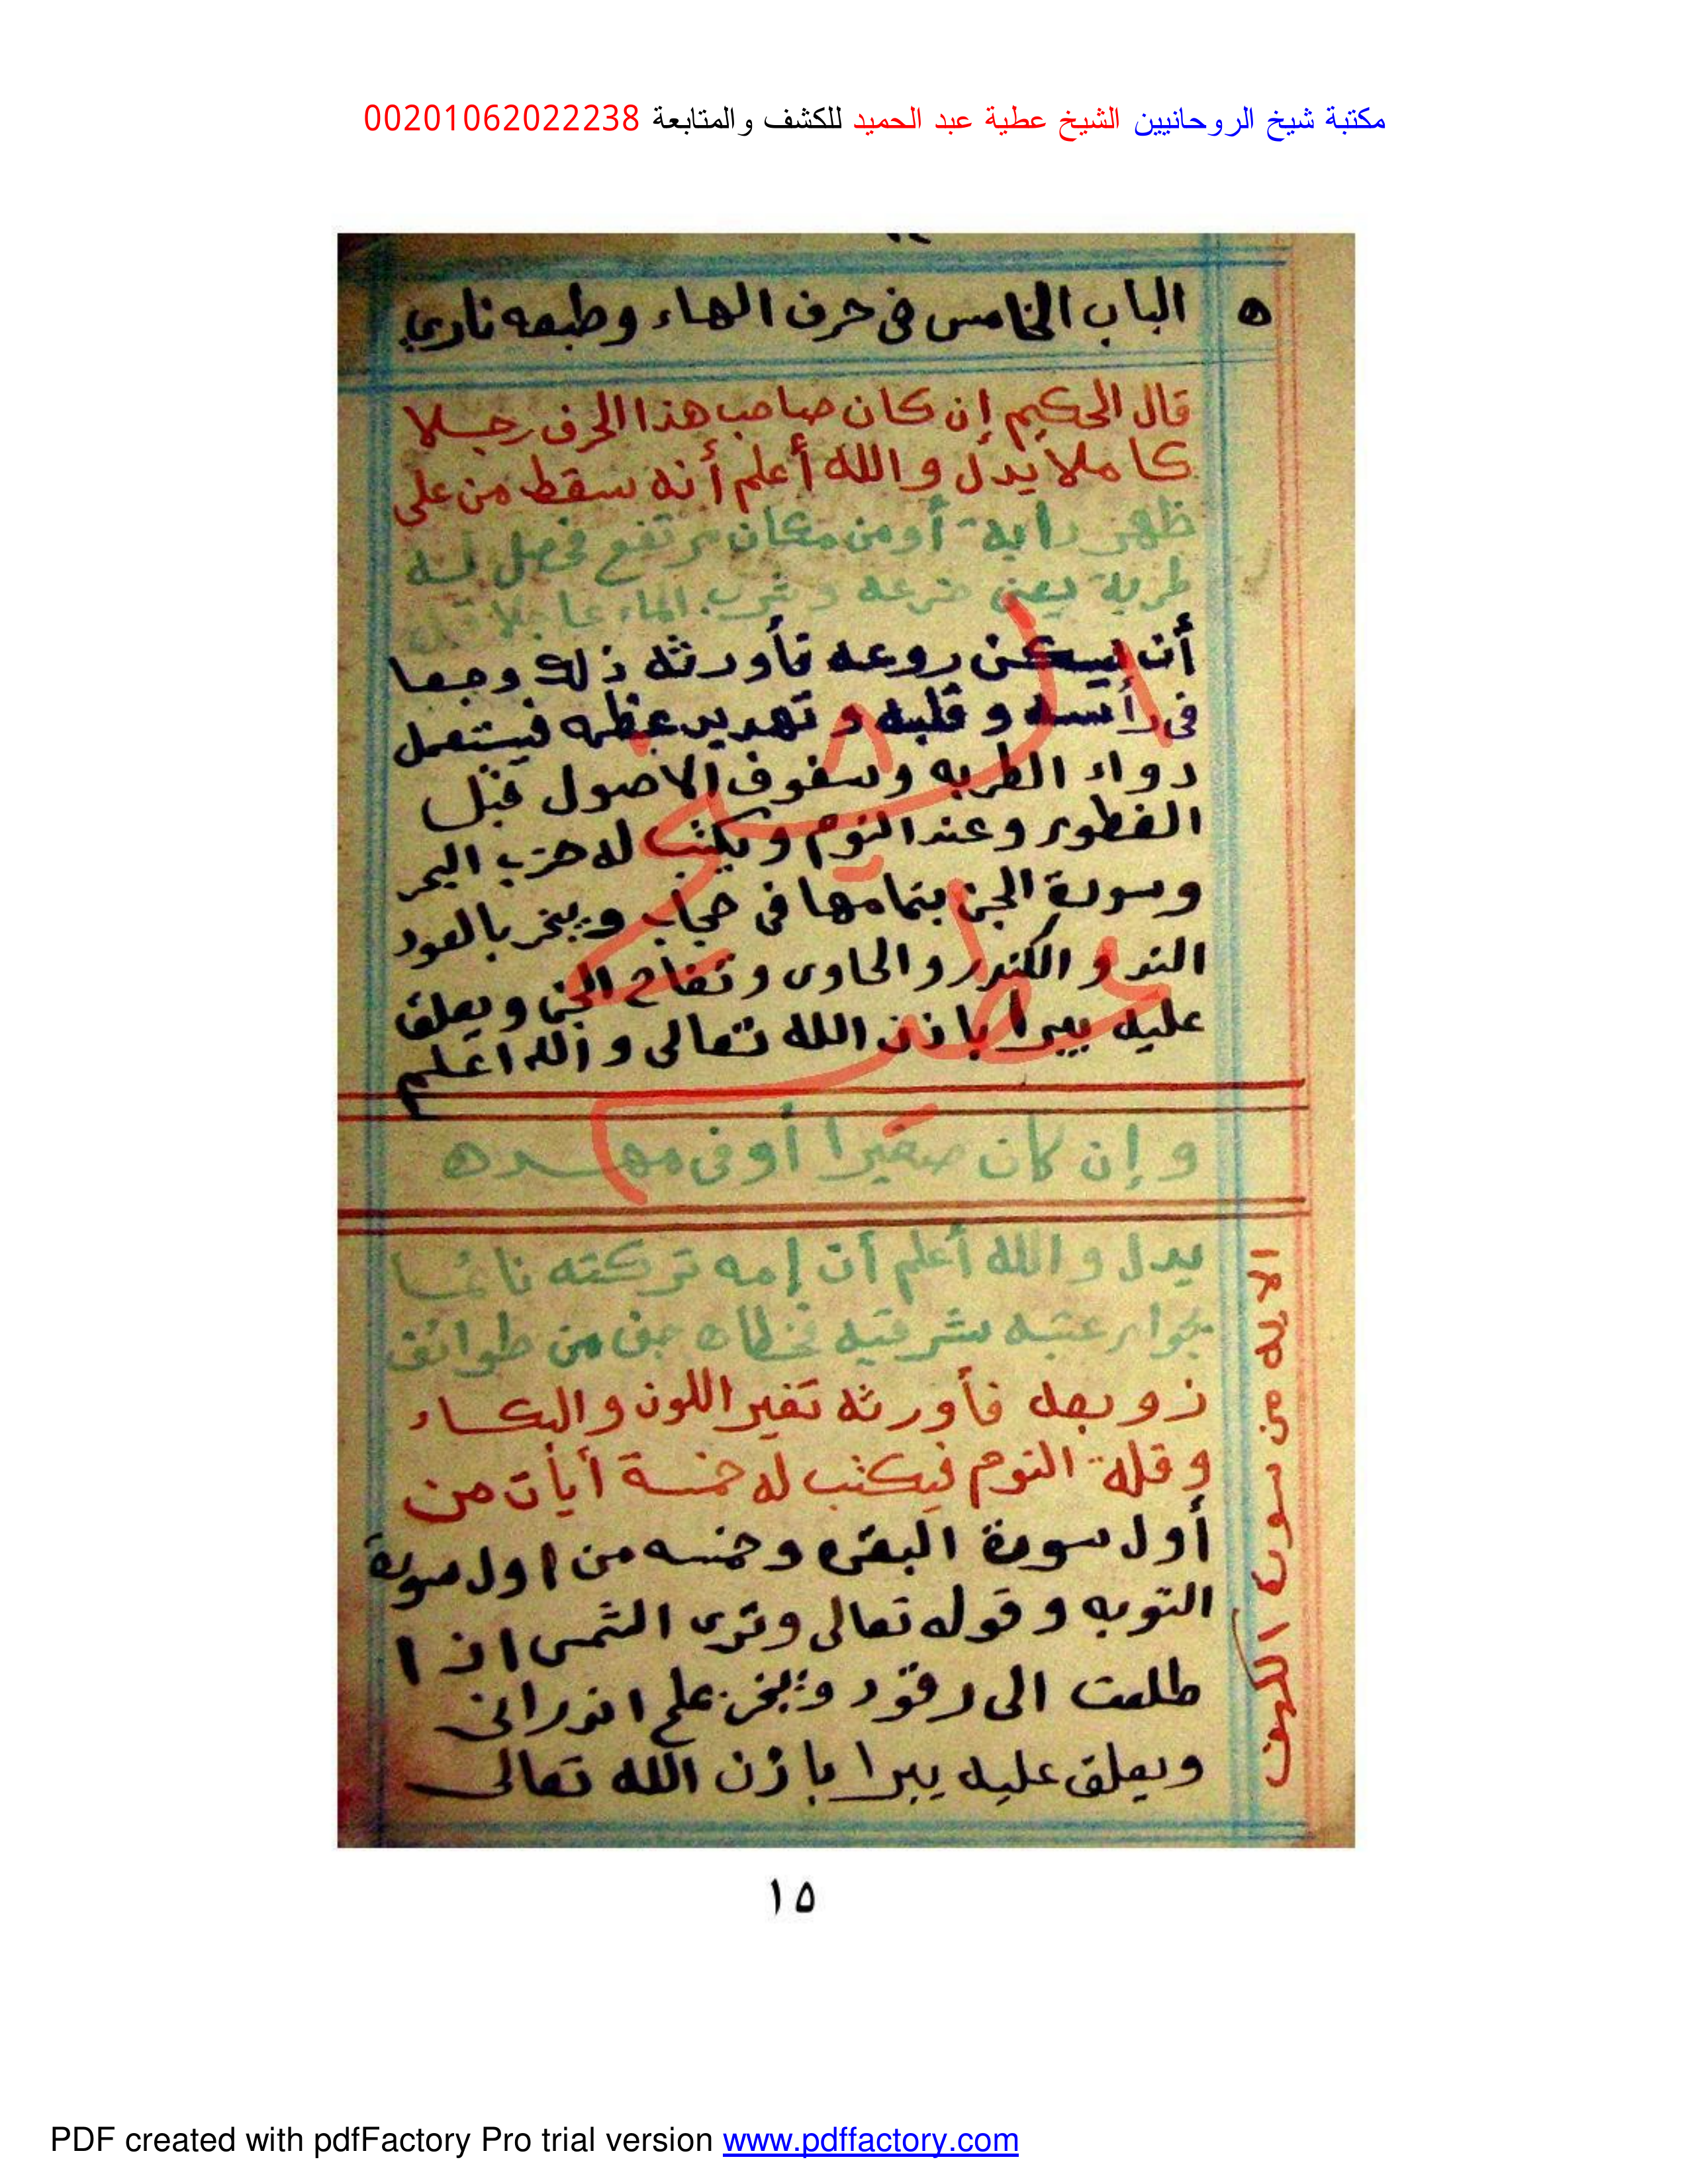 مكتبة شيخ الروحانيين الشيخ عطية عبد الحميد للكشف والمتابعة 00201062022238
ه الباب الخامس فى حرف الهاء وطبعه نارى
قال الحكيم إن كان صاحب هذا الحرف رجلا
كاملا يدل والله أعلم أنه سقط من على
ظهر دابة أو من مكان مرتفع فحصل له
طربة يعنى خرعه وشرب الماء عاجلا قبل
أن يسكن روعه فأورثه ذلك وجعا
فى رأسه وقلبه و عظمه فيستعمل
دواء الطربه وسفوف الاصول قبل
الفطور وعند النوم ويكتب له حزب البحر
وسورة الجن بتمامها فى حجاب ويبخر بالعود
الند والكندر والحاوى وتفاح الجن ويعلق
عليه يبرأ باذن الله تعالى والله اعلم
وإن كان صغيرا أو فى مهده
يدل والله أعلم أن إمه تركته نائما
بجوار عتبه شرقيه فخطاه جن من طوائف
زوبعه فأورثه تغير اللون والبكاء
وقلة النوم فيكتب له خمسة أيات من
أول سورة البقره وخمسه من اول سورة
التوبه وقوله تعالى وترى الشمس اذا
طلعت الى رقود ويبخر
ويعلق عليه يبرا باذن الله تعالى
الايه من سورة الكهف
الشيخ عطيه
١٥
PDF created with pdfFactory Pro trial version www.pdffactory.com